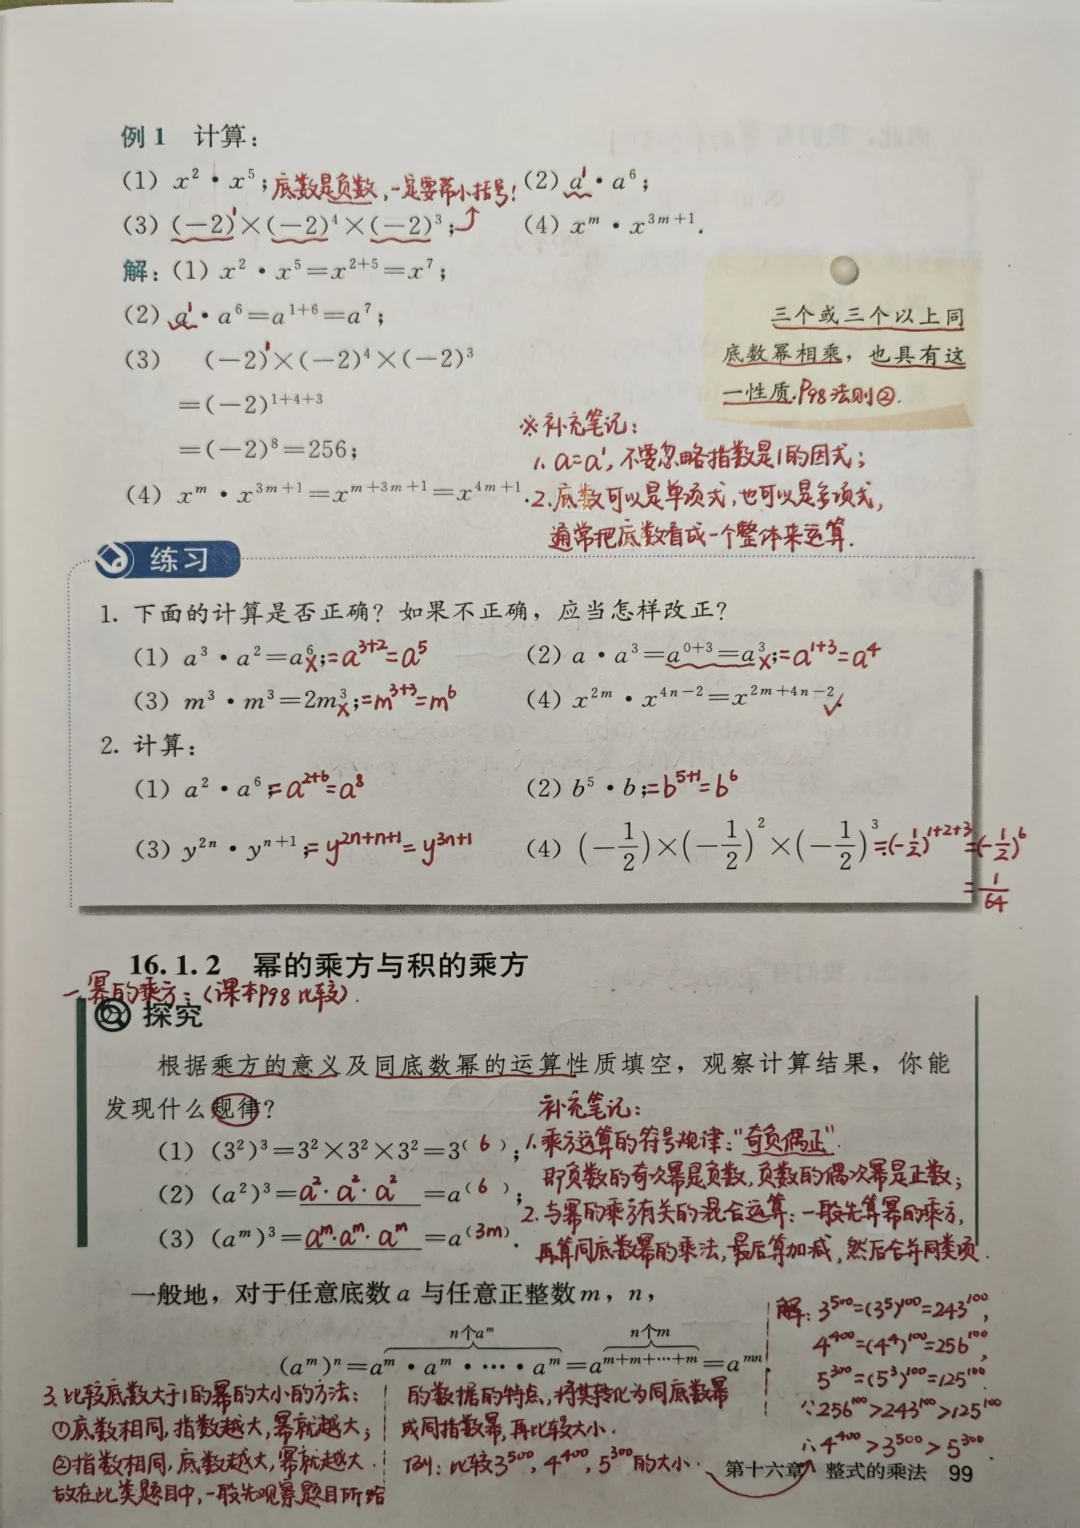 例1 计算：
(1) x²·x⁵； 底数是负数，一定要带小括号！ (2) a¹·a⁶；
(3) (−2)¹×(−2)⁴×(−2)³； (4) xᵐ·x³ᵐ⁺¹.
解：(1) x²·x⁵=x²⁺⁵=x⁷；
(2) a¹·a⁶=a¹⁺⁶=a⁷；
三个或三个以上同
底数幂相乘，也具有这
一性质.P98法则②.
(3) (−2)¹×(−2)⁴×(−2)³
=(−2)¹⁺⁴⁺³
=(−2)⁸=256；
(4) xᵐ·x³ᵐ⁺¹=xᵐ⁺³ᵐ⁺¹=x⁴ᵐ⁺¹.
※补充笔记：
1. a=a¹，不要忽略指数是1的因式；
2. 底数可以是单项式，也可以是多项式，
通常把底数看成一个整体来运算.
练习
1. 下面的计算是否正确？如果不正确，应当怎样改正？
(1) a³·a²=a⁶；× =a³⁺²=a⁵ (2) a·a³=a⁰⁺³=a³；× =a¹⁺³=a⁴
(3) m³·m³=2m³；× =m³⁺³=m⁶ (4) x²ᵐ·x⁴ⁿ⁻²=x²ᵐ⁺⁴ⁿ⁻². ✓
2. 计算：
(1) a²·a⁶；=a²⁺⁶=a⁸ (2) b⁵·b；=b⁵⁺¹=b⁶
(3) y²ⁿ·yⁿ⁺¹；=y²ⁿ⁺ⁿ⁺¹=y³ⁿ⁺¹ (4) (−1/2)×(−1/2)²×(−1/2)³.=(−1/2)¹⁺²⁺³=(−1/2)⁶
=1/64
16.1.2 幂的乘方与积的乘方
一.幂的乘方：(课本P98比较).
探究
根据乘方的意义及同底数幂的运算性质填空，观察计算结果，你能
发现什么规律？
(1) (3²)³=3²×3²×3²=3⁽⁶⁾；
(2) (a²)³=a²·a²·a²=a⁽⁶⁾；
(3) (aᵐ)³=aᵐ·aᵐ·aᵐ=a⁽³ᵐ⁾.
补充笔记：
1. 乘方运算的符号规律：“奇负偶正”.
即负数的奇次幂是负数，负数的偶次幂是正数；
2. 与幂的乘方有关的混合运算：一般先算幂的乘方，
再算同底数幂的乘法，最后算加减，然后合并同类项.
一般地，对于任意底数a与任意正整数m，n，
n个aᵐ n个m
(aᵐ)ⁿ=aᵐ·aᵐ·…·aᵐ=aᵐ⁺ᵐ⁺…⁺ᵐ=aᵐⁿ
3. 比较底数大于1的幂的大小的方法：
①底数相同，指数越大，幂就越大；
②指数相同，底数越大，幂就越大.
故在此类题目中，一般先观察题目所给
的数据的特点，将其转化为同底数幂
或同指数幂，再比较大小.
例：比较3⁵⁰⁰，4⁴⁰⁰，5³⁰⁰的大小.
解：3⁵⁰⁰=(3⁵)¹⁰⁰=243¹⁰⁰，
4⁴⁰⁰=(4⁴)¹⁰⁰=256¹⁰⁰，
5³⁰⁰=(5³)¹⁰⁰=125¹⁰⁰.
∵256¹⁰⁰>243¹⁰⁰>125¹⁰⁰
∴4⁴⁰⁰>3⁵⁰⁰>5³⁰⁰.
第十六章 整式的乘法 99